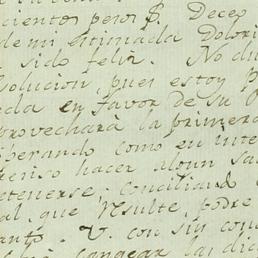 cientos pesos $. Deceo
de mi estimada Dolori
sido feliz. No du
solucion, pues estoy p
eda en favor de su
aprovechará la primera
iberando como en inte
preciso hacer algun sa
etenerse. Conciliand
al, que resulte, podre
tanto. V. con sin con
cangear las dic